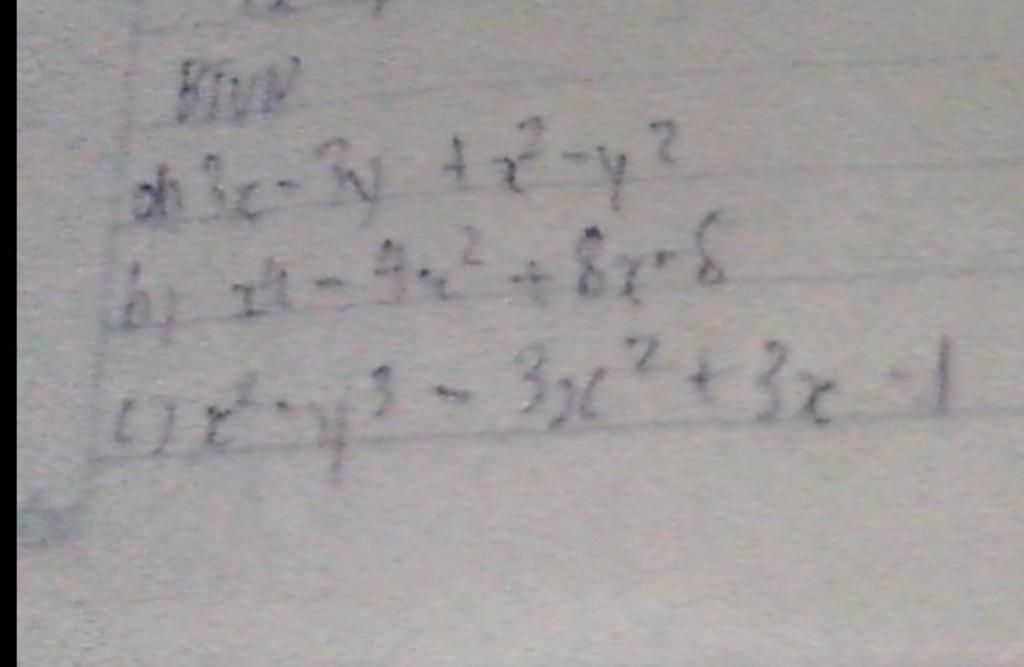 BTVN
a) 3x - 3y + x² - y²
b) x⁴ - 4x² + 8x - 8
c) x² - y³ - 3x² + 3x - 1